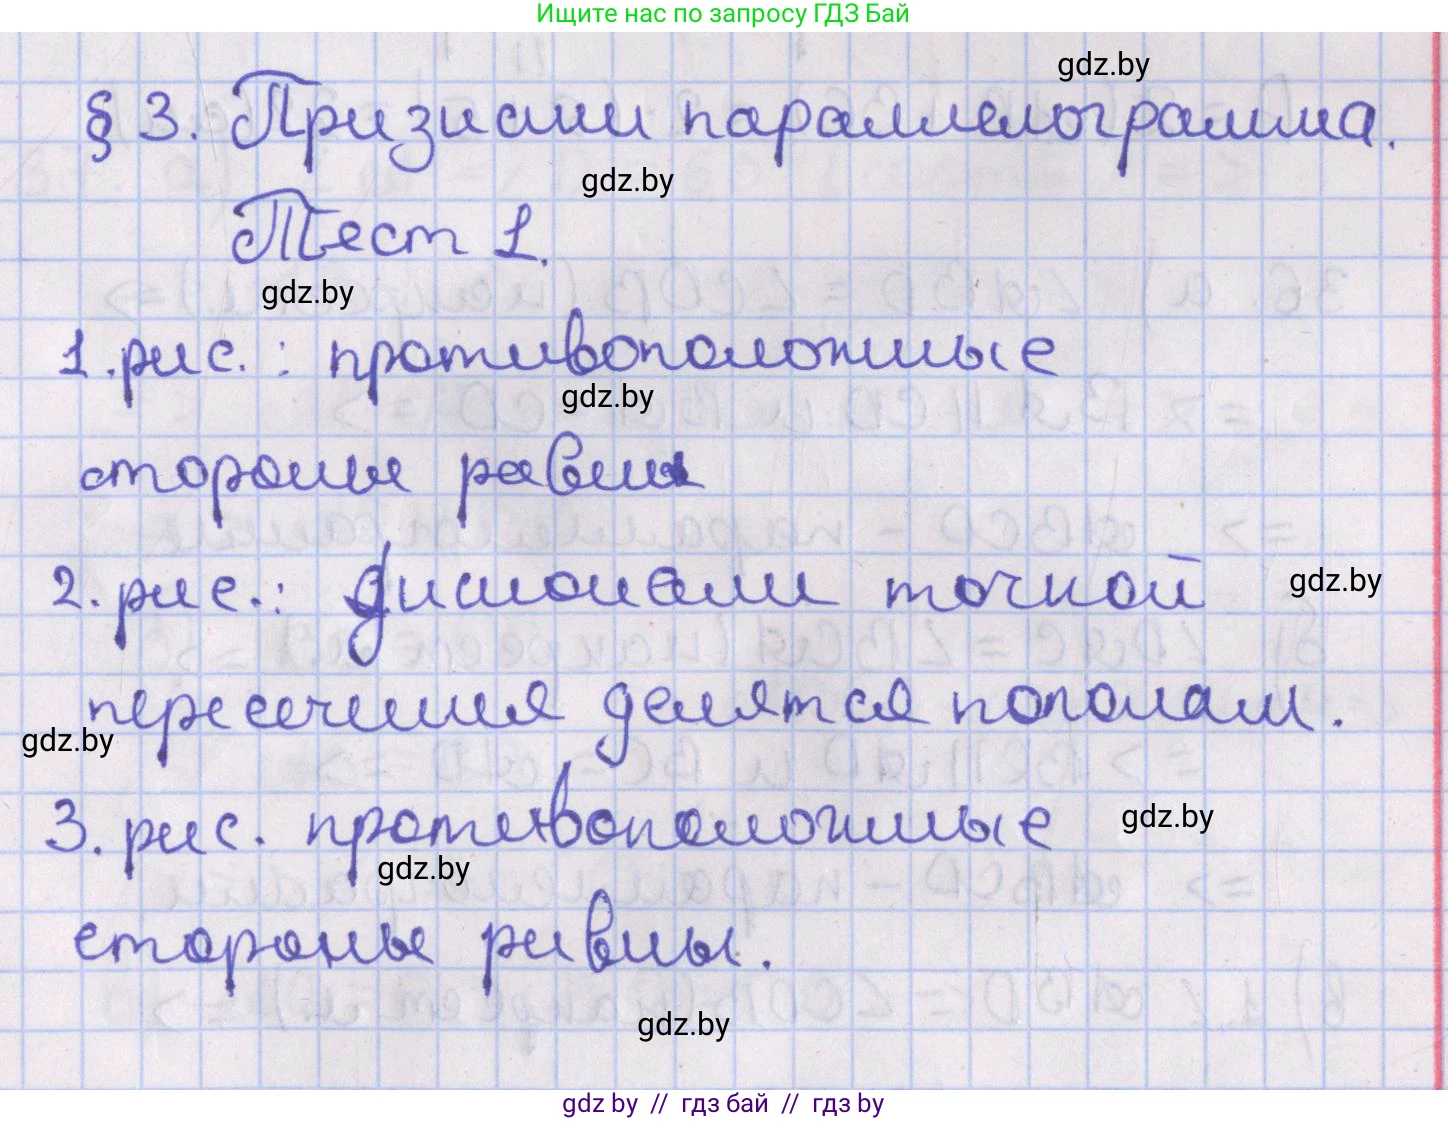 Ищите нас по запросу ГДЗ Бай
gdz.by
§ 3. Признаки параллелограмма.
gdz.by
Тест 1.
gdz.by
1. рис. : противоположные
gdz.by
стороны равны
2. рис.: диагонали точкой
gdz.by
пересечения делятся пополам.
gdz.by
3. рис. противоположные
gdz.by
gdz.by
стороны равны.
gdz.by
gdz by // гдз бай // гдз by